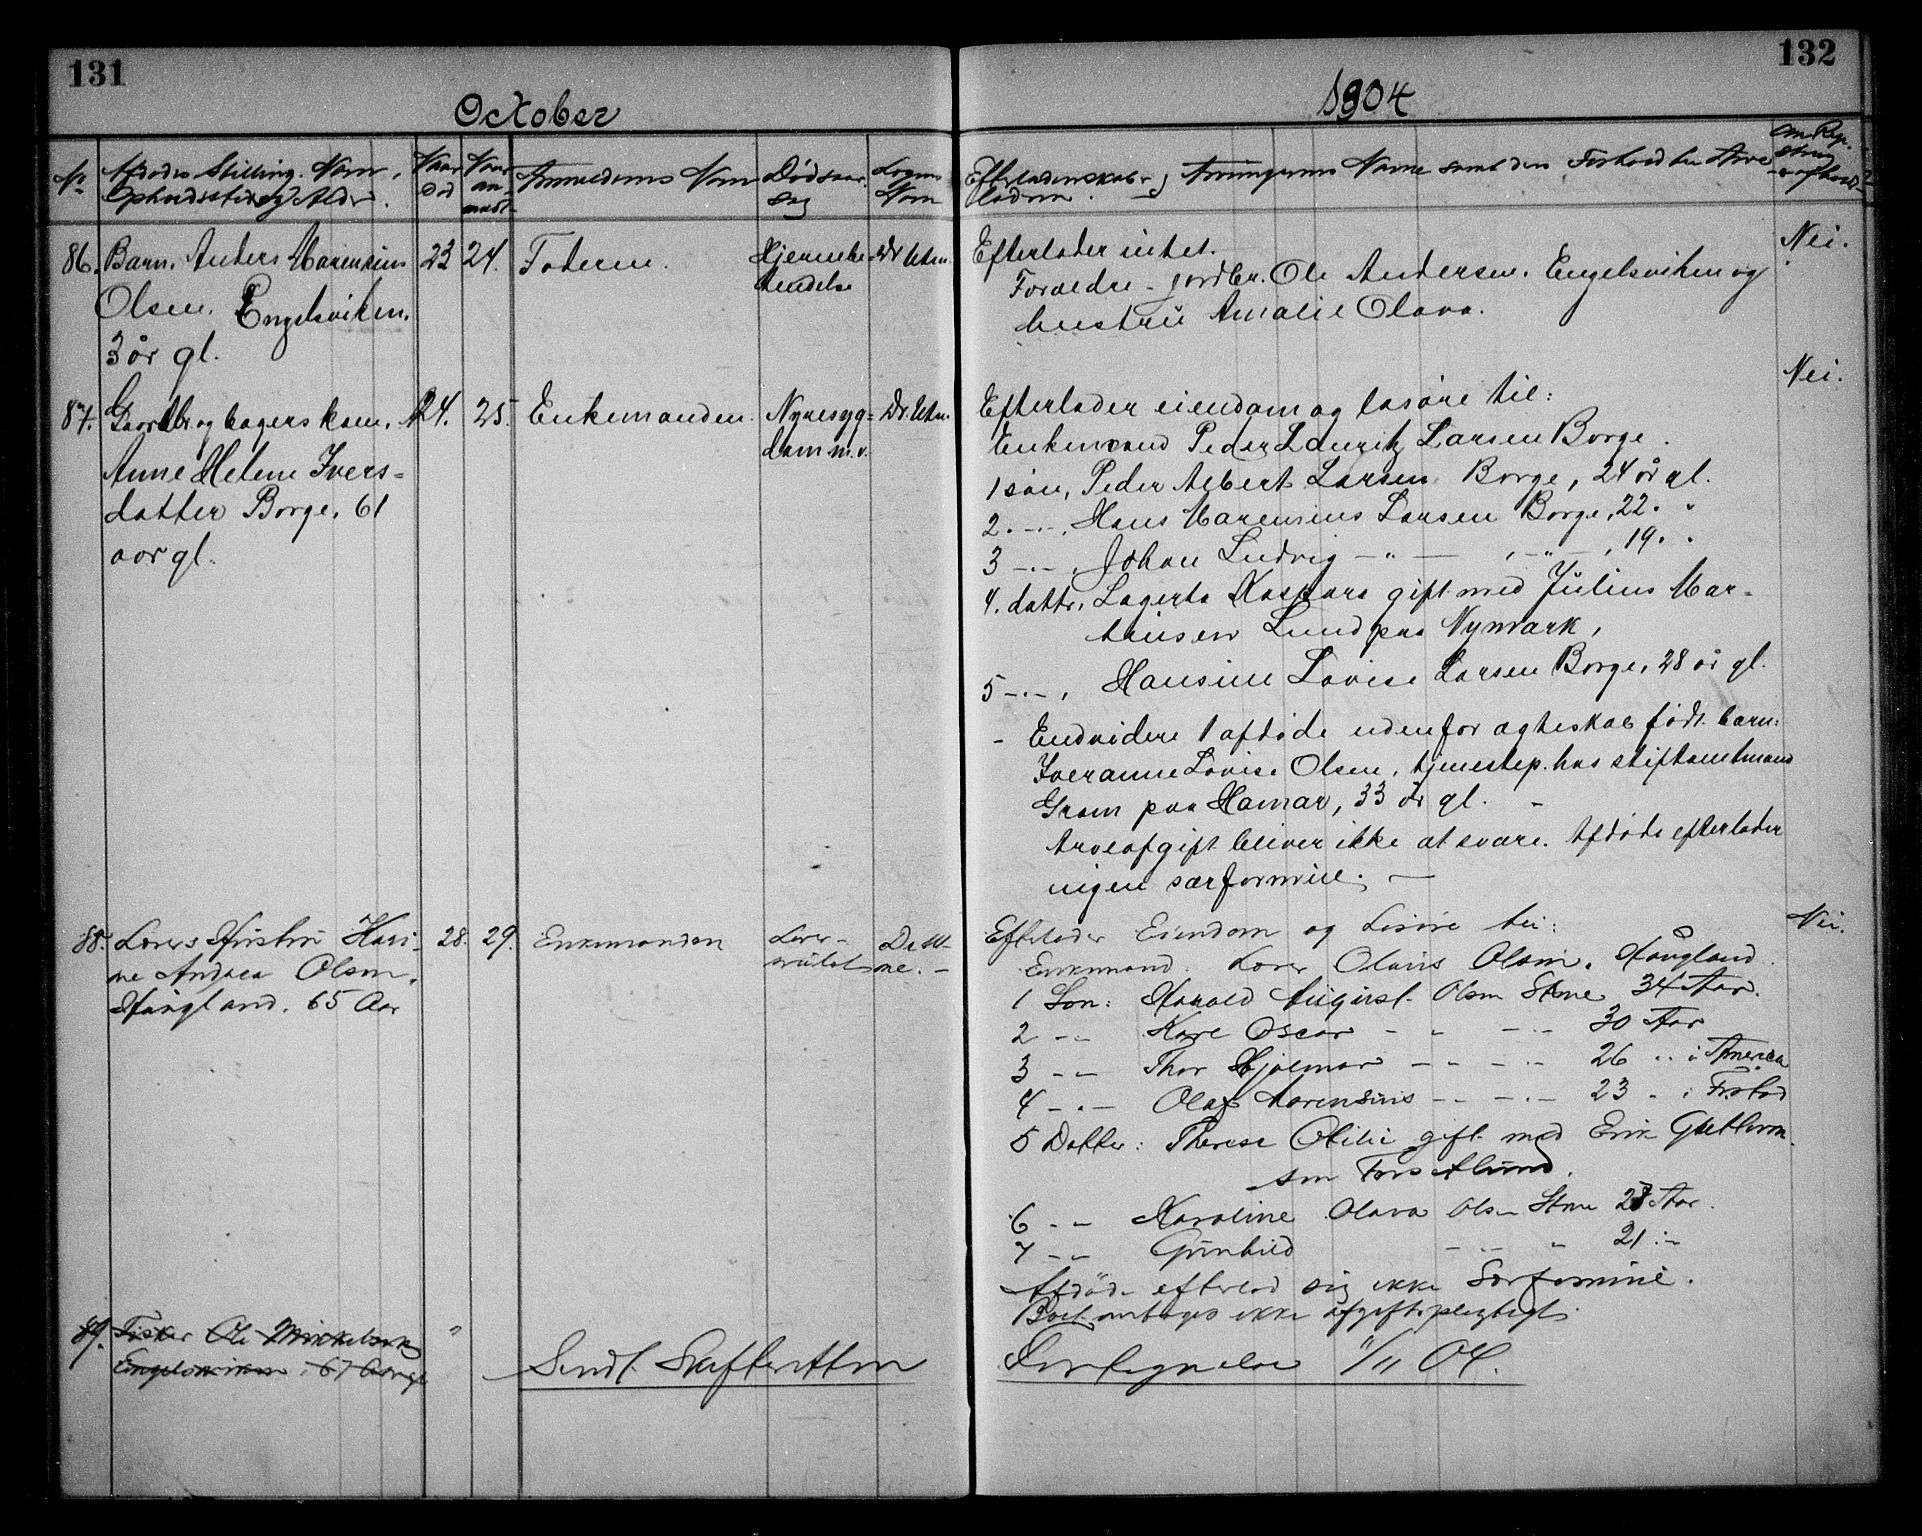 131
October
No
Afdødes Stilling. Navn,
Opholdssted og Alder.
Naar
Død
Naar
an-
meldt
Anmelderens Navn
Dødsaar-
sag
Lægens
Navn
86. Barn. Anders Marensius
Olsen. Engelsviken.
3 år gl.
23
24.
Faderen.
Hjernebe-
tændelse
Dr Utne.
87. Gaardbr. og bagers kone,
Anne Helene Ivers-
datter Borge, 61
aar gl.
24.
25.
Enkemanden.
Nyresyg-
dom m.v.
Dr. Utne
88. Losers Hustru Hari-
ne Andrea Olsen.
Haugland. 65 Aar
28.
29.
Enkemanden
89. Fisker Ole Mikkelsen
Engelsviken, 67 Aar gl
"
Sendt Skifteretten
132
1904
Efterladenskaber og Arvingernes Navne samt deres Forhold til Arve-
laderen.
Efterlader intet.
Forældre - jordbr. Ole Andersen, Engelsviken og
hustru Amalie Olava.
Nei.
Efterlader eiendom og løsøre til:
Enkemand Peder Lauritz Larsen Borge.
1 søn, Peder Albert Larsen Borge, 24 år gl.
2. -"-, Hans Marensius Larsen Borge, 22. "
3 -"-, Johan Ludvig -"- , -"- , 19. "
4. dattr, Lagerta Kaspara gift med Julius Mar-
tinsen Lund paa Nymark,
5 -"-, Hansine Lovise Larsen Borge, 28 år gl.
- Endvidere 1 afdøde udenfor ægteskab født barn:
Iveranne Lovise Olsen, tjenestep. hos stiftamtmand
Gram paa Hamar, 33 år gl. -
Arveafgift bliver ikke at svare. Afdøde efterlader
ingen særformue. -
Nei.
Efterlader Eiendom og Løsøre til:
Enkemand. Loser Olavis Olsen. Haugland.
1 Søn: Harald August Olsen Stene 34 Aar.
2 -"- Kare Oscar - " - " - 30 Aar
3 -"- Thor Hjalmar - " - " - 26 " i America
4 -"- Olaf Marensius - " - " - 23 " i Frstad
5 Datter: Therese Otilie gift med Erik
6 -"- Karoline Olava Olsen Stene 28 Aar.
7 -"- Gunhild - " - " 21 "-
Afdøde efterlod sig ikke Særformue.
Boet antages ikke afgiftspligtigt.
Nei.
Fortegnelse 1/11 04.